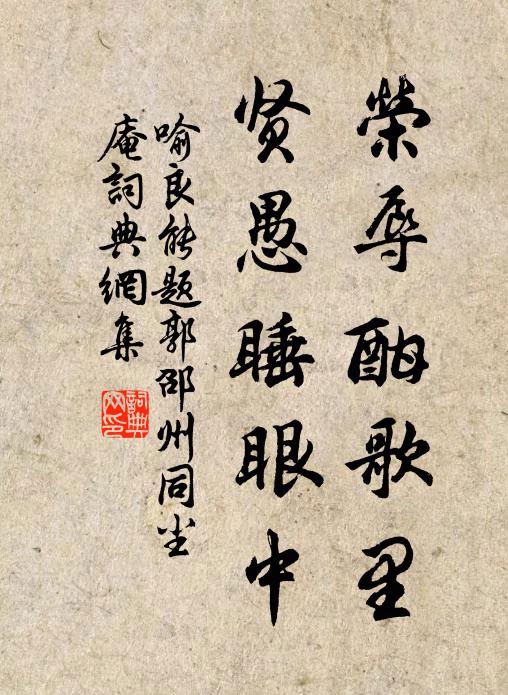 榮辱酣歌里
贤愚睡眼中
喻良能题郭邵州同尘
庵詞典網集
詞典网印